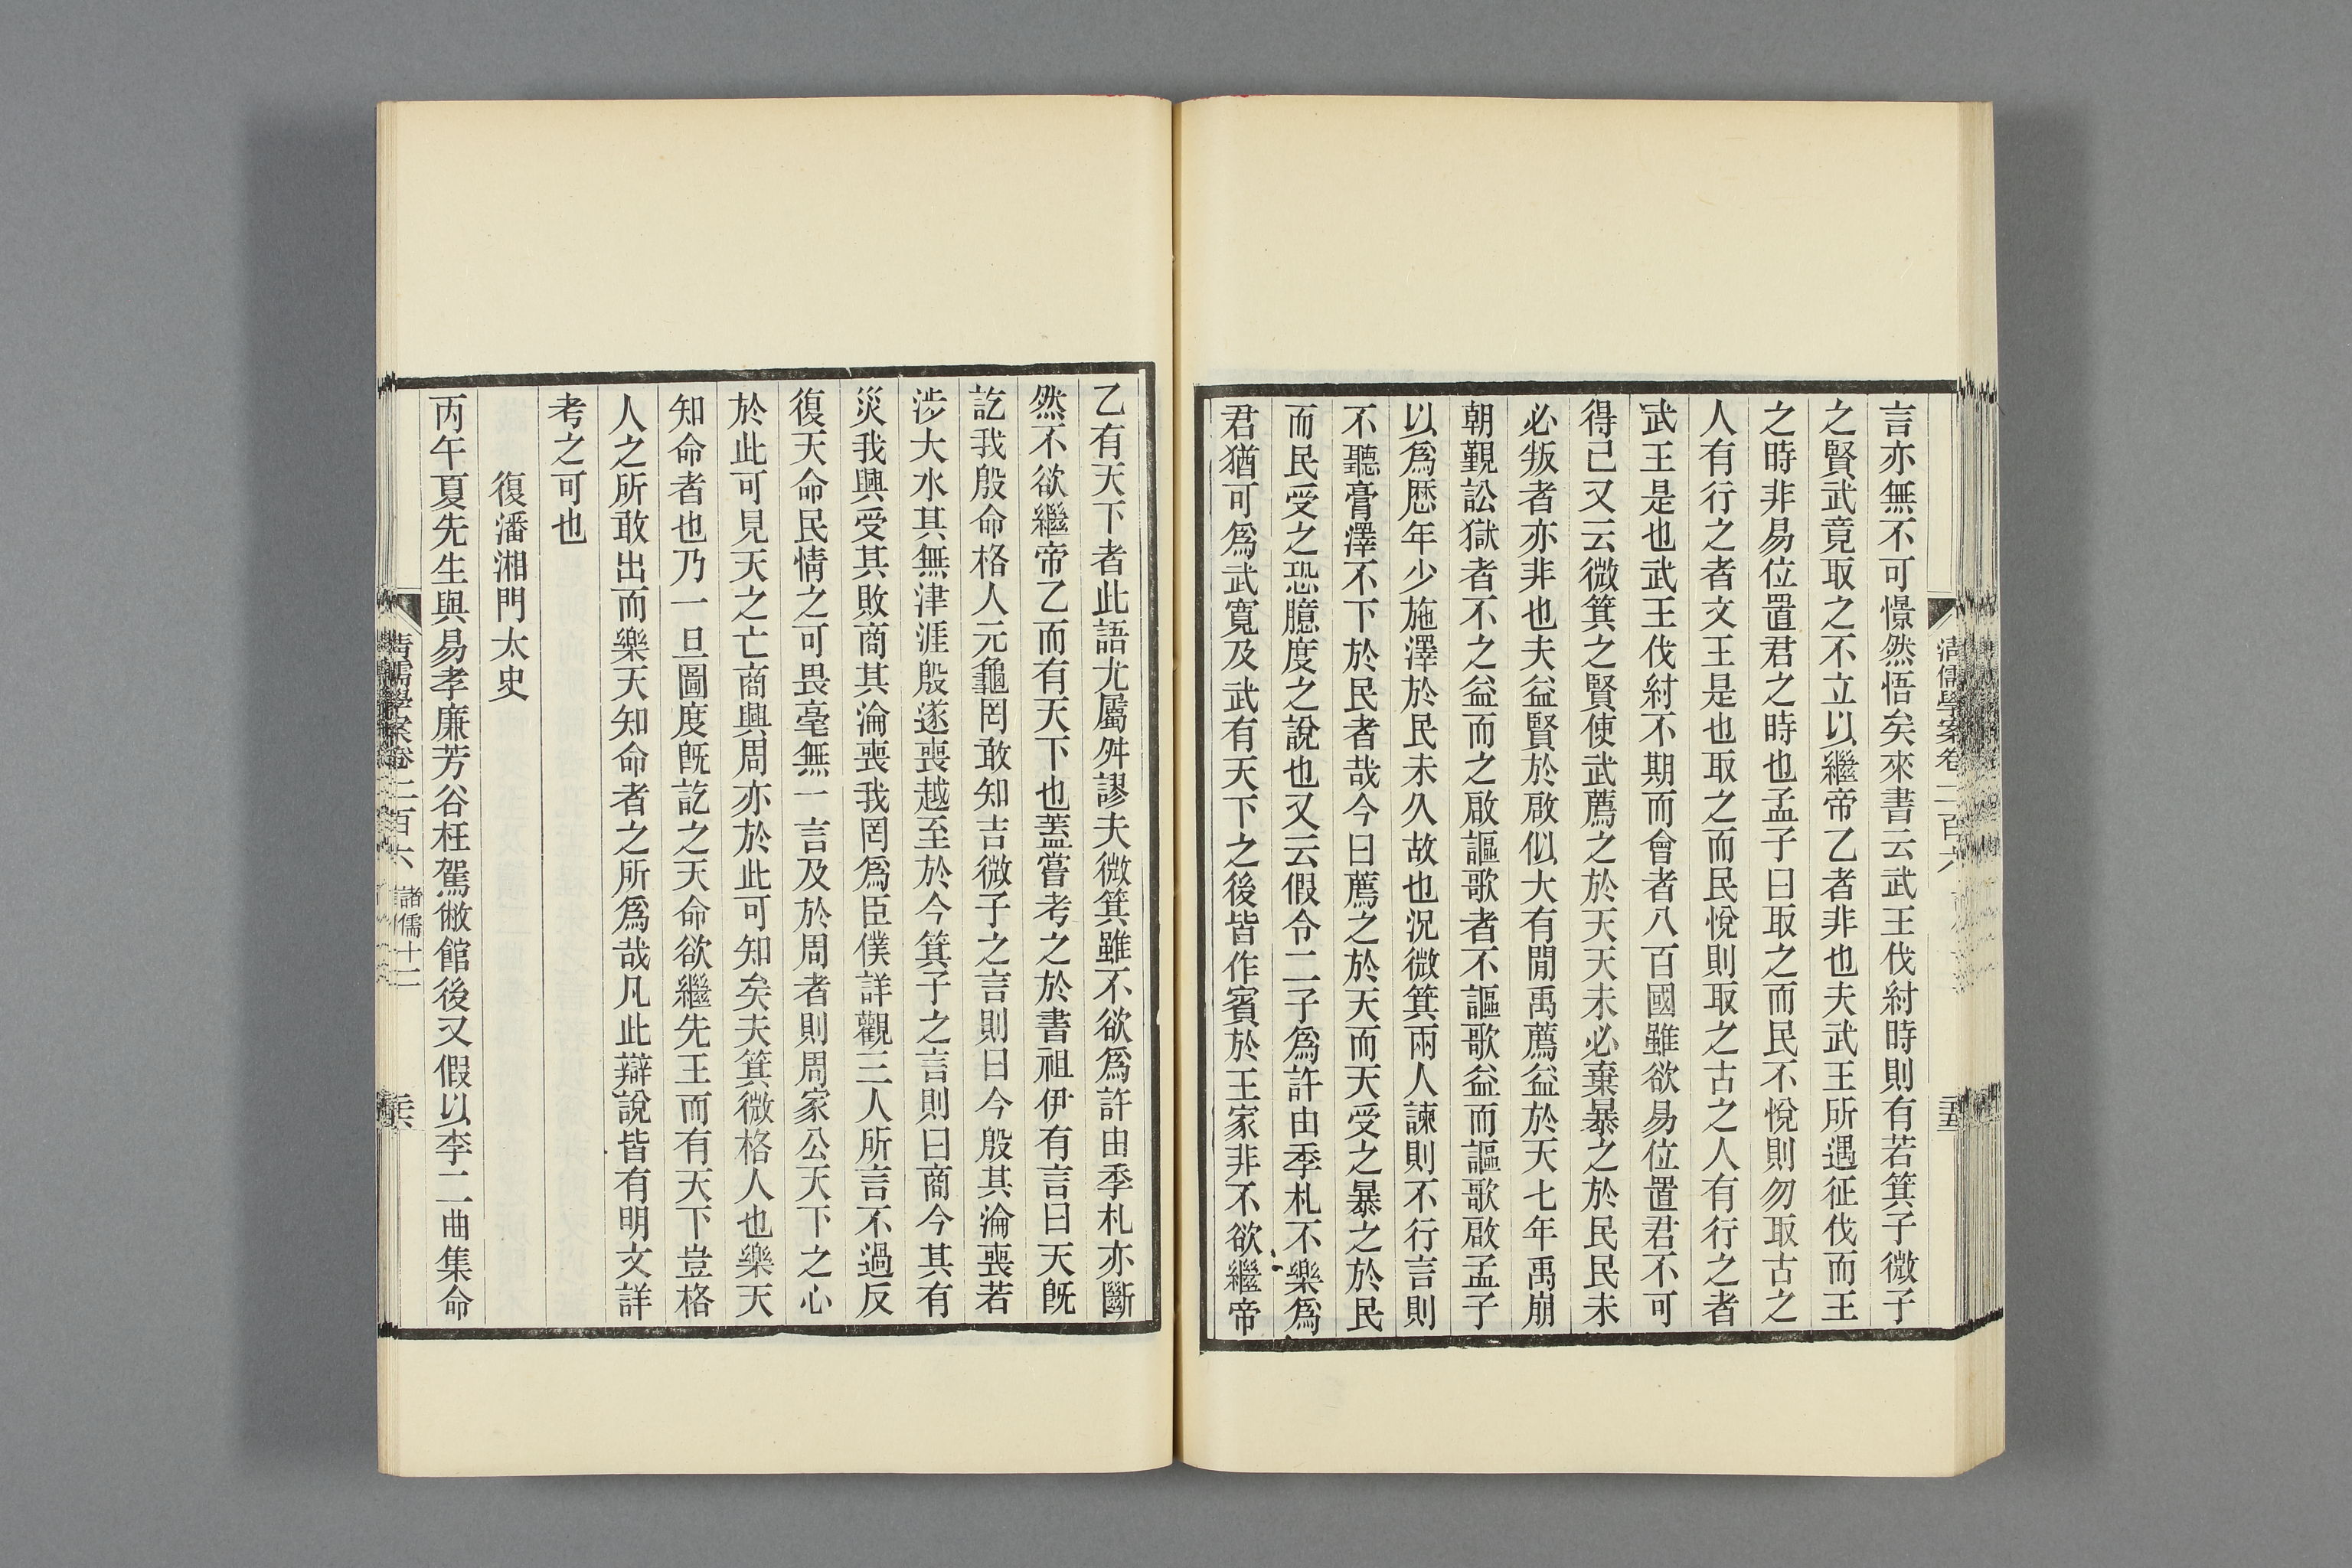 言亦無不可憬然悟矣來書云武王伐紂時則有若箕子微子
之賢武竟取之不立以繼帝乙者非也夫武王所遇征伐而王
之時非易位置君之時也孟子曰取之而民不悅則勿取古之
人有行之者文王是也取之而民悅則取之古之人有行之者
武王是也武王伐紂不期而會者八百國雖欲易位置君不可
得已又云微箕之賢使武薦之於天天未必棄暴之於民民未
必叛者亦非也夫益賢於啟似大有閒禹薦益於天七年禹崩
朝覲訟獄者不之益而之啟謳歌者不謳歌益而謳歌啟孟子
以爲歷年少施澤於民未久故也況微箕兩人諫則不行言則
不聽膏澤不下於民者哉今日薦之於天而天受之暴之於民
而民受之恐臆度之說也又云假令二子爲許由季札不樂爲
君猶可爲武寬及武有天下之後皆作賓於王家非不欲繼帝
清儒學案卷二百六
乙有天下者此語尤屬舛謬夫微箕雖不欲爲許由季札亦斷
然不欲繼帝乙而有天下也蓋嘗考之於書祖伊有言曰天旣
訖我殷命格人元龜罔敢知吉微子之言則曰今殷其淪喪若
涉大水其無津涯殷遂喪越至於今箕子之言則曰商今其有
災我興受其敗商其淪喪我罔爲臣僕詳觀三人所言不過反
復天命民情之可畏毫無一言及於周者則周家公天下之心
於此可見天之亡商興周亦於此可知矣夫箕微格人也樂天
知命者也乃一旦圖度旣訖之天命欲繼先王而有天下豈格
人之所敢出而樂天知命者之所爲哉凡此辯說皆有明文詳
考之可也
復潘湘門太史
丙午夏先生與易孝廉芳谷枉駕敝館後又假以李二曲集命
清儒學案卷二百六 諸儒十二